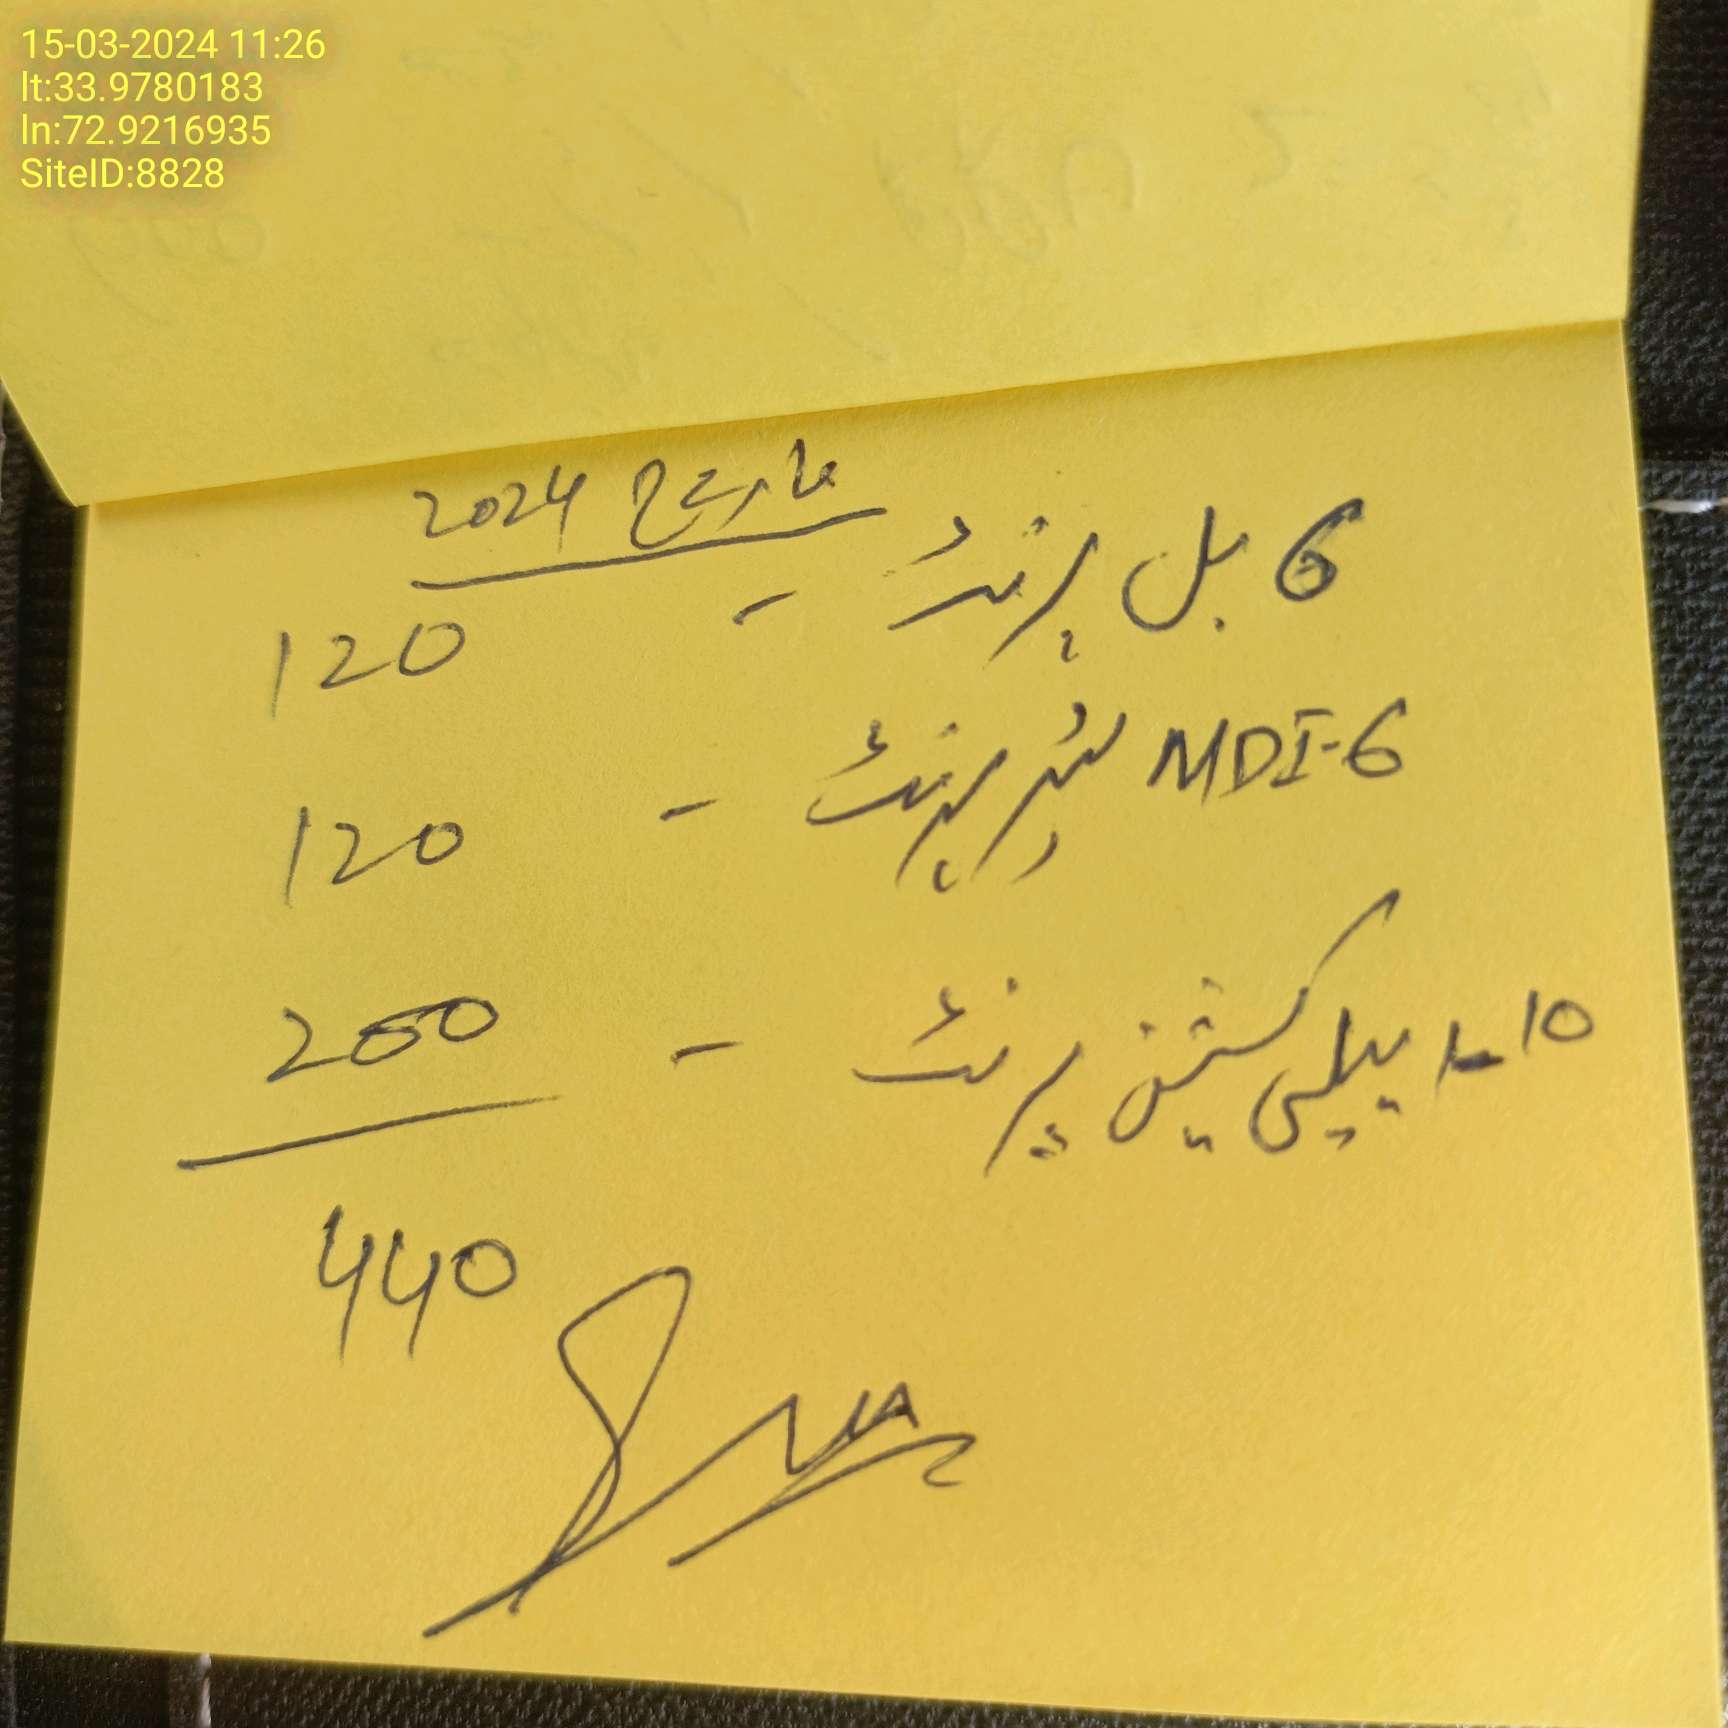 15-03-2024 11:26
lt:33.9780183
ln:72.9216935
SiteID:8828
مارچ 2024
6 بل پرنٹ - 120
6-MDI لیٹر پرنٹ - 120
10-اپیلی کیشن پرنٹ - 200
440